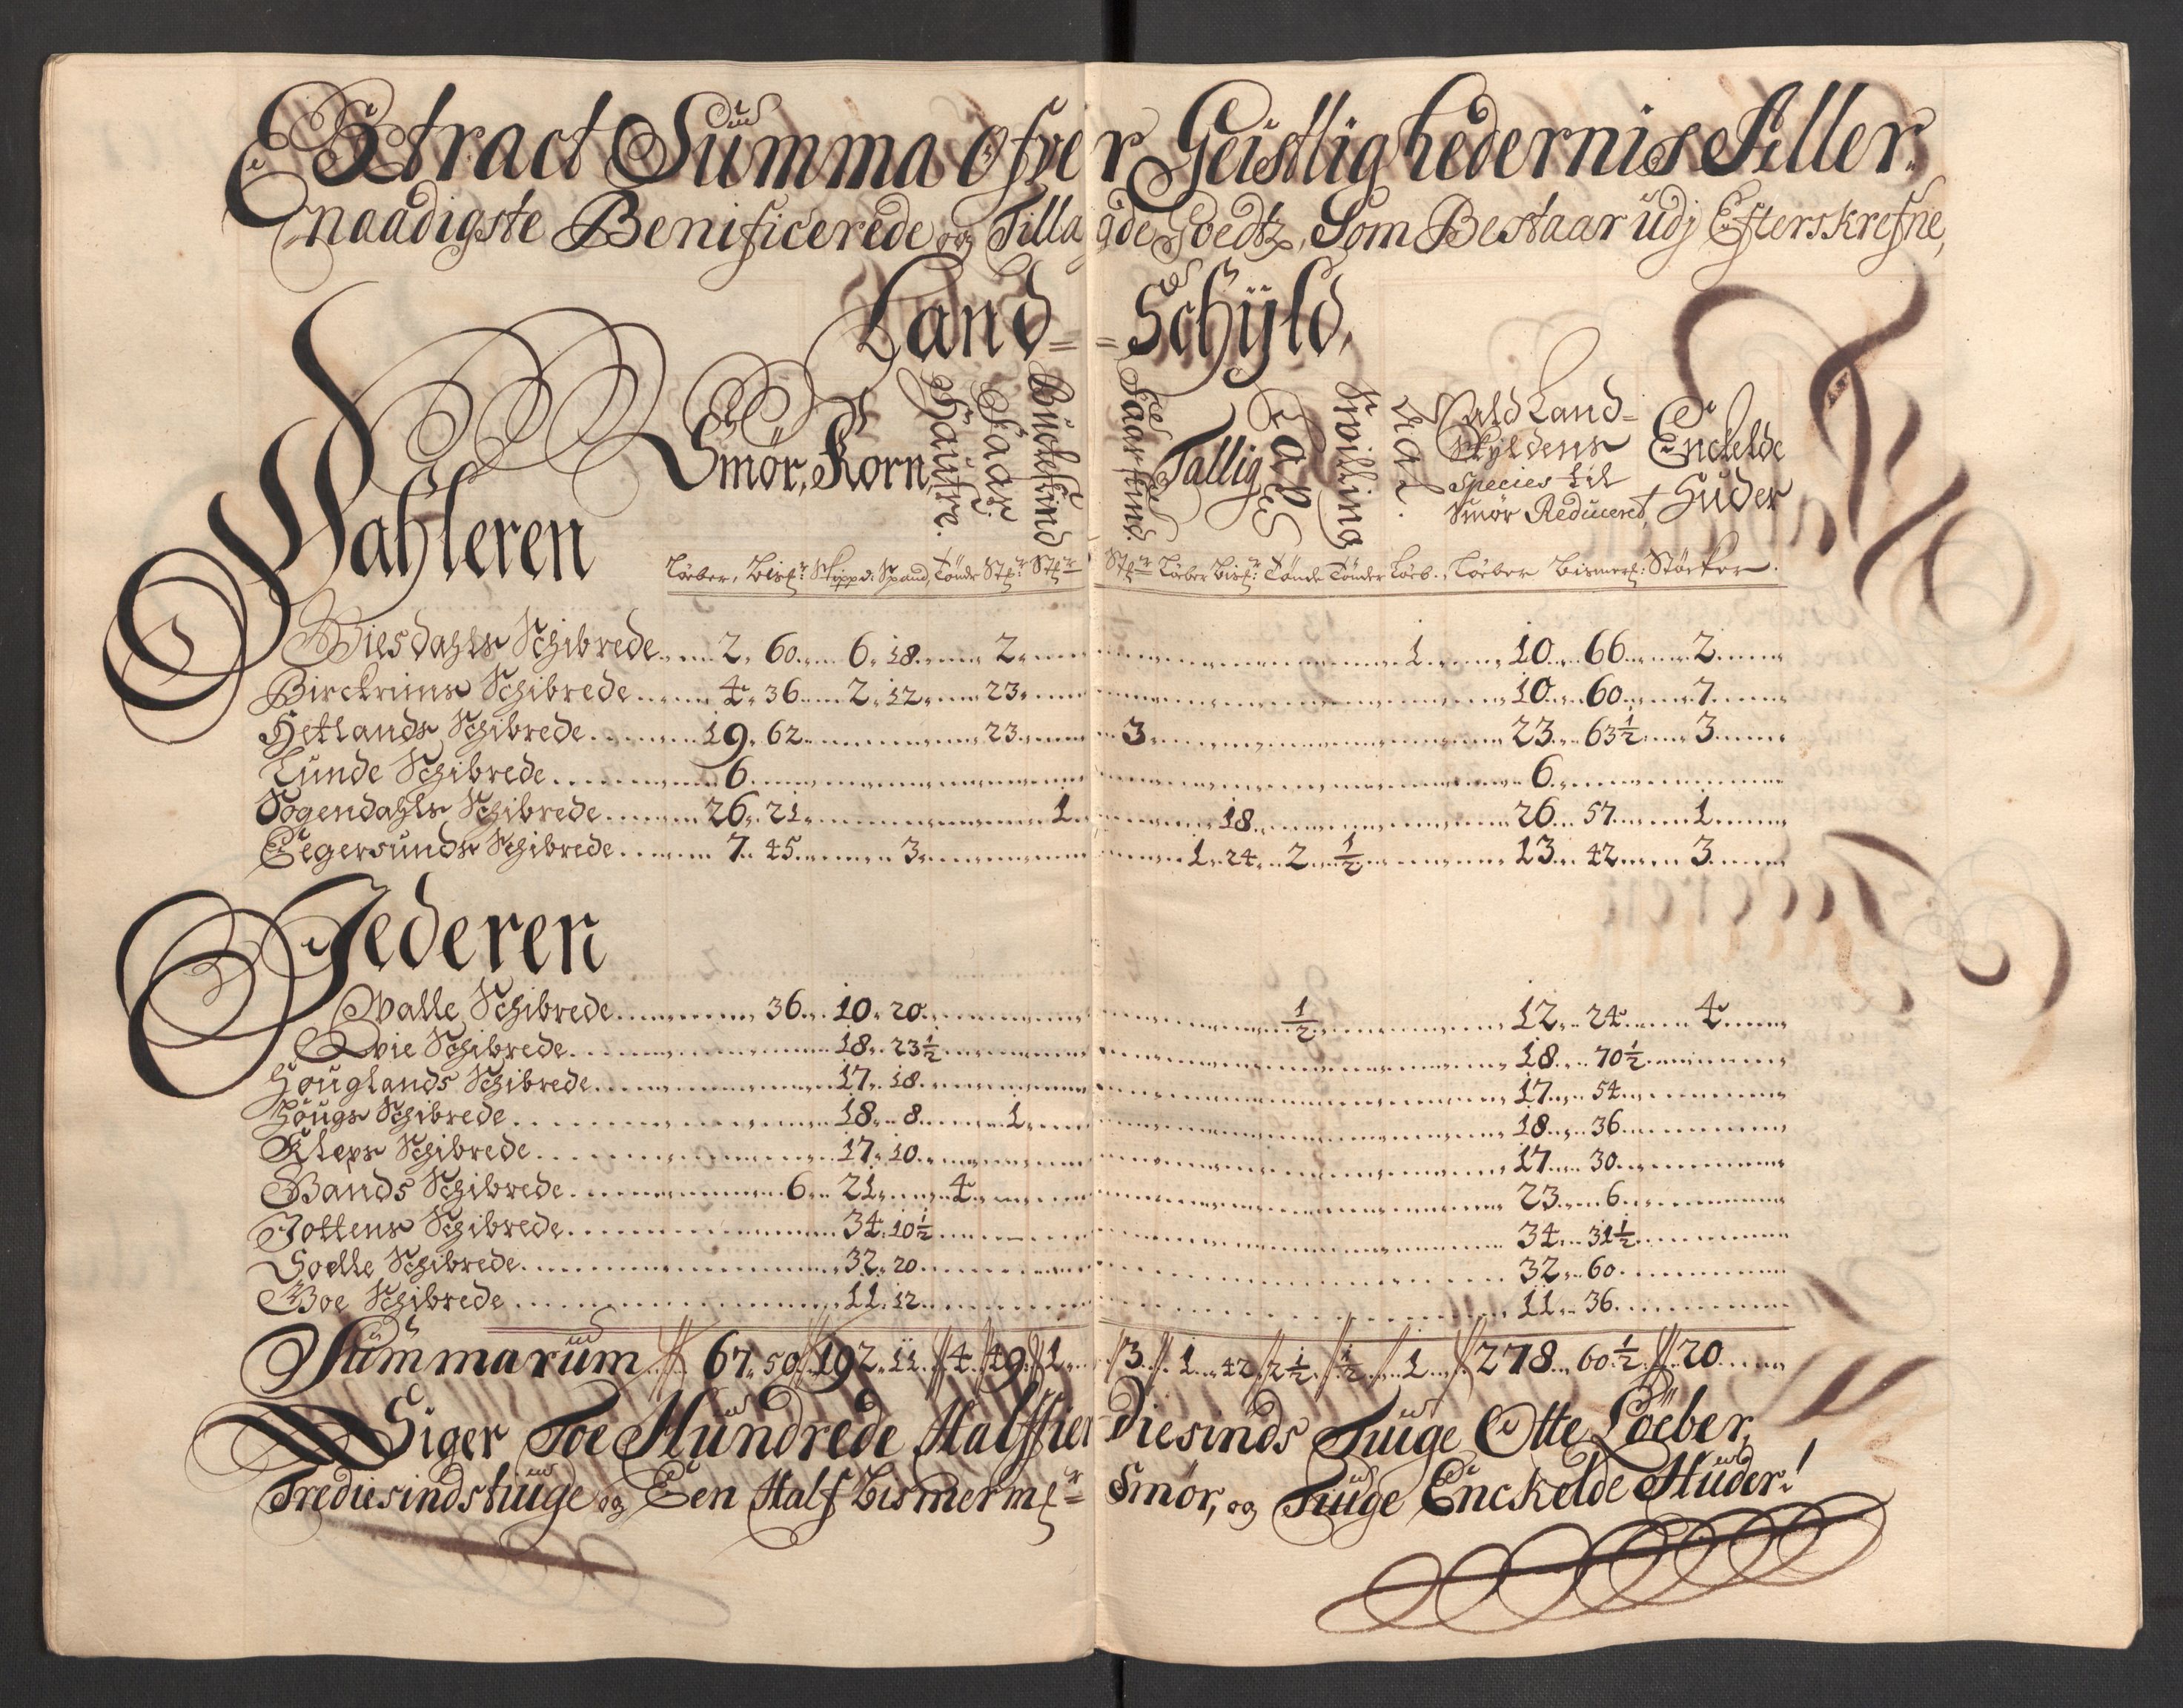 Extract Summa ofver Geistlighedernis Aller-
naadigste Benificerede og Tillagde Goedtz, Som Bestaar udj Efterskrefne,
Land= =Schÿld,
Dahleren Smör, Korn, Hafre. Faar. Buckeskind Faarskind. Tallig Salt Trilling Ald Land-
skÿldens
species til
Smör Reduceret Enckelde
Huder
Löeber, Bism: Skippd: Spand, Tönde St: St: St: Löeber Bism: Tönde Tönder Löeb., Löeber Bismer: Störker.
Biesdahls Schibrede 2. 60. 6. 18. 2. 1. 10. 66. 2.
Birckrims Schibrede 4. 36. 2. 12. 23. 10. 60. 7.
Hetlands Schibrede 19. 62. 23. 3. 23. 63½ 3.
Lunde Schibrede 6. 6.
Sogendahls Schibrede 26. 21. 1. 18. 26. 57. 1.
Eegersunds Schibrede 7. 45. 3. 1. 24. 2. ½ 13. 42. 3.
Jederen
Walle Schibrede 36. 10. 20. ½ 12. 24. 4.
Qvie Schibrede 18. 23½ 18. 70½
Höuglands Schibrede 17. 18. 17. 54.
Höugs Schibrede 18. 8. 1. 18. 36.
Kleps Schibrede 17. 10. 17. 30.
Bands Schibrede 6. 21. 4. 23. 6.
Jottens Schibrede 34. 10½ 34. 31½
Soelle Schibrede 32. 20. 32. 60.
Boe Schibrede 11. 12. 11. 36.
Summarum 67. 50 192. 11. 4. 49 1. 3. 1. 42. 2½ ½ 1 278. 60½ 20.
Siger Toe Hundrede Halffierdiesinds Tiuge Otte Löeber,
Trediesindstiuge og Een Half Bismerm= Smör, og Tiuge Enckelde Huder!